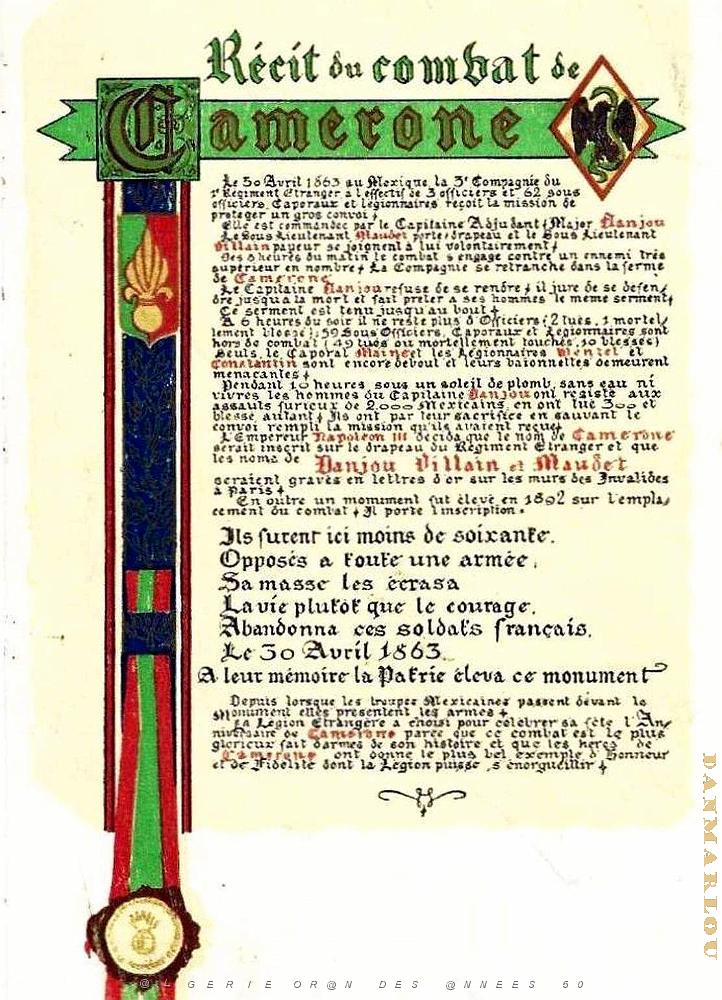 Récit du combat de
Camerone
Le 30 Avril 1863 au Mexique, la 3e Compagnie du
1er Régiment Etranger à l'effectif de 3 officiers et 62 sous
officiers, Caporaux et légionnaires reçoit la mission de
protéger un gros convoi,
Elle est commandée par le Capitaine Adjudant-Major Danjou
Le Sous Lieutenant Maudet porte-drapeau et le Sous Lieutenant
Villain payeur se joignent à lui volontairement,
Dès 5 heures du matin le combat s'engage contre un ennemi très
supérieur en nombre, La Compagnie se retranche dans la ferme
de Camerone
Le Capitaine Danjou refuse de se rendre, il jure de se défen-
dre jusqu'à la mort et fait prêter à ses hommes le même serment,
Ce serment est tenu jusqu'au bout,
A 6 heures du soir il ne reste plus d'Officiers (2 tués, 1 mortel-
lement blessé); 59 Sous Officiers, Caporaux et Légionnaires sont
hors de combat (49 tués ou mortellement touchés, 10 blessés)
Seuls, le Caporal Maine et les Légionnaires Wenzel et
Constantin sont encore debout et leurs baïonnettes demeurent
menaçantes,
Pendant 10 heures, sous un soleil de plomb, sans eau ni
vivres les hommes du Capitaine Danjou ont résisté aux
assauts furieux de 2.000 Mexicains, en ont tué 300 et
blessé autant, Ils ont par leur sacrifice en sauvant le
convoi rempli la mission qu'ils avaient reçue,
L'Empereur Napoléon III décida que le nom de Camerone
serait inscrit sur le drapeau du Régiment Etranger et que
les noms de Danjou Villain et Maudet
seraient gravés en lettres d'or sur les murs des Invalides
à Paris,
En outre un monument fut élevé en 1892 sur l'empla-
cement du combat, Il porte l'inscription.
Ils furent ici moins de soixante.
Opposés a toute une armée,
Sa masse les écrasa
La vie plutôt que le courage.
Abandonna ces soldats français.
Le 30 Avril 1863.
A leur mémoire la Patrie éleva ce monument
Depuis lorsque les troupes Mexicaines passent devant le
Monument elles présentent les armes,
La Légion Etrangère a choisi pour célébrer sa fête l'An-
niversaire de Camerone parce que ce combat est le plus
glorieux fait d'armes de son histoire et que les héros de
Camerone ont donné le plus bel exemple d'Honneur
et de Fidélité dont la Légion puisse s'énorgueillir,
DANMARLOU
@LGERIE OR@N DES @NNEES 50